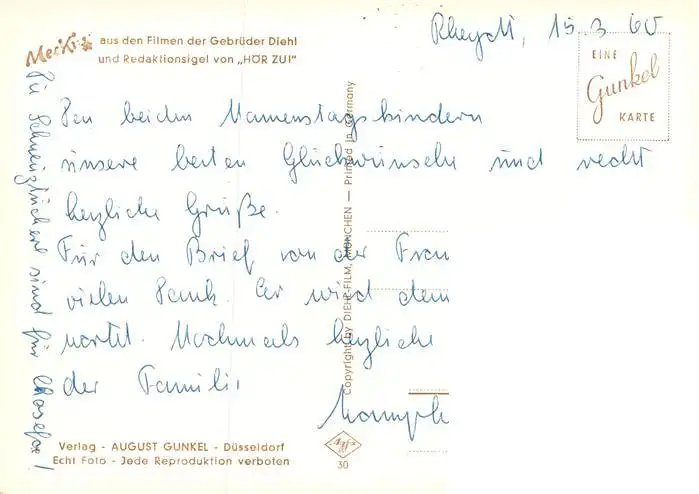 Rheydt, 15.3.60
Mecki aus den Filmen der Gebrüder Diehl
und Redaktionsigel von „HÖR ZU!"
EINE
Gunkel
KARTE
Den beiden Namenstagskindern
unsere besten Glückwünsche und recht
herzliche Grüße.
Für den Brief von der Frau
vielen Dank. Er wird dem
Nochmals herzliche
der Famili
Die sind für
Copyright by DIEHL-FILM, MÜNCHEN — Printed in Germany
Verlag - AUGUST GUNKEL - Düsseldorf
Echt Foto - Jede Reproduktion verboten
Agfa
30